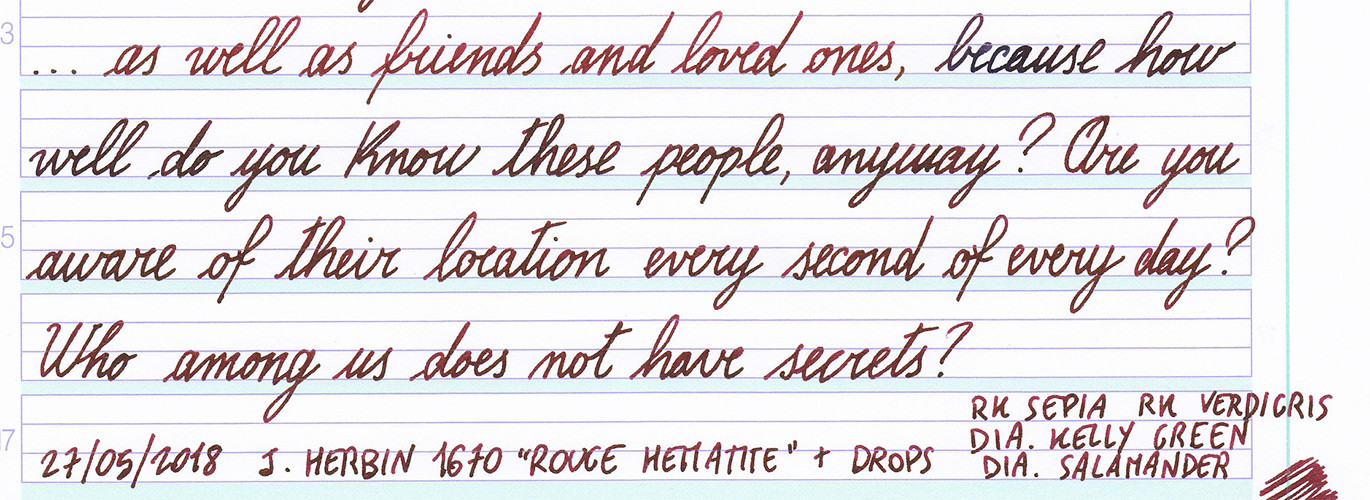 3
... as well as friends and loved ones, because how
well do you know these people, anyway? Are you
5
aware of their location every second of every day?
Who among us does not have secrets?
RK SEPIA RK VERDIGRIS
7
27/05/2018 J. HERBIN 1670 "ROUGE HEMATITE" + DROPS
DIA. KELLY GREEN
DIA. SALAMANDER